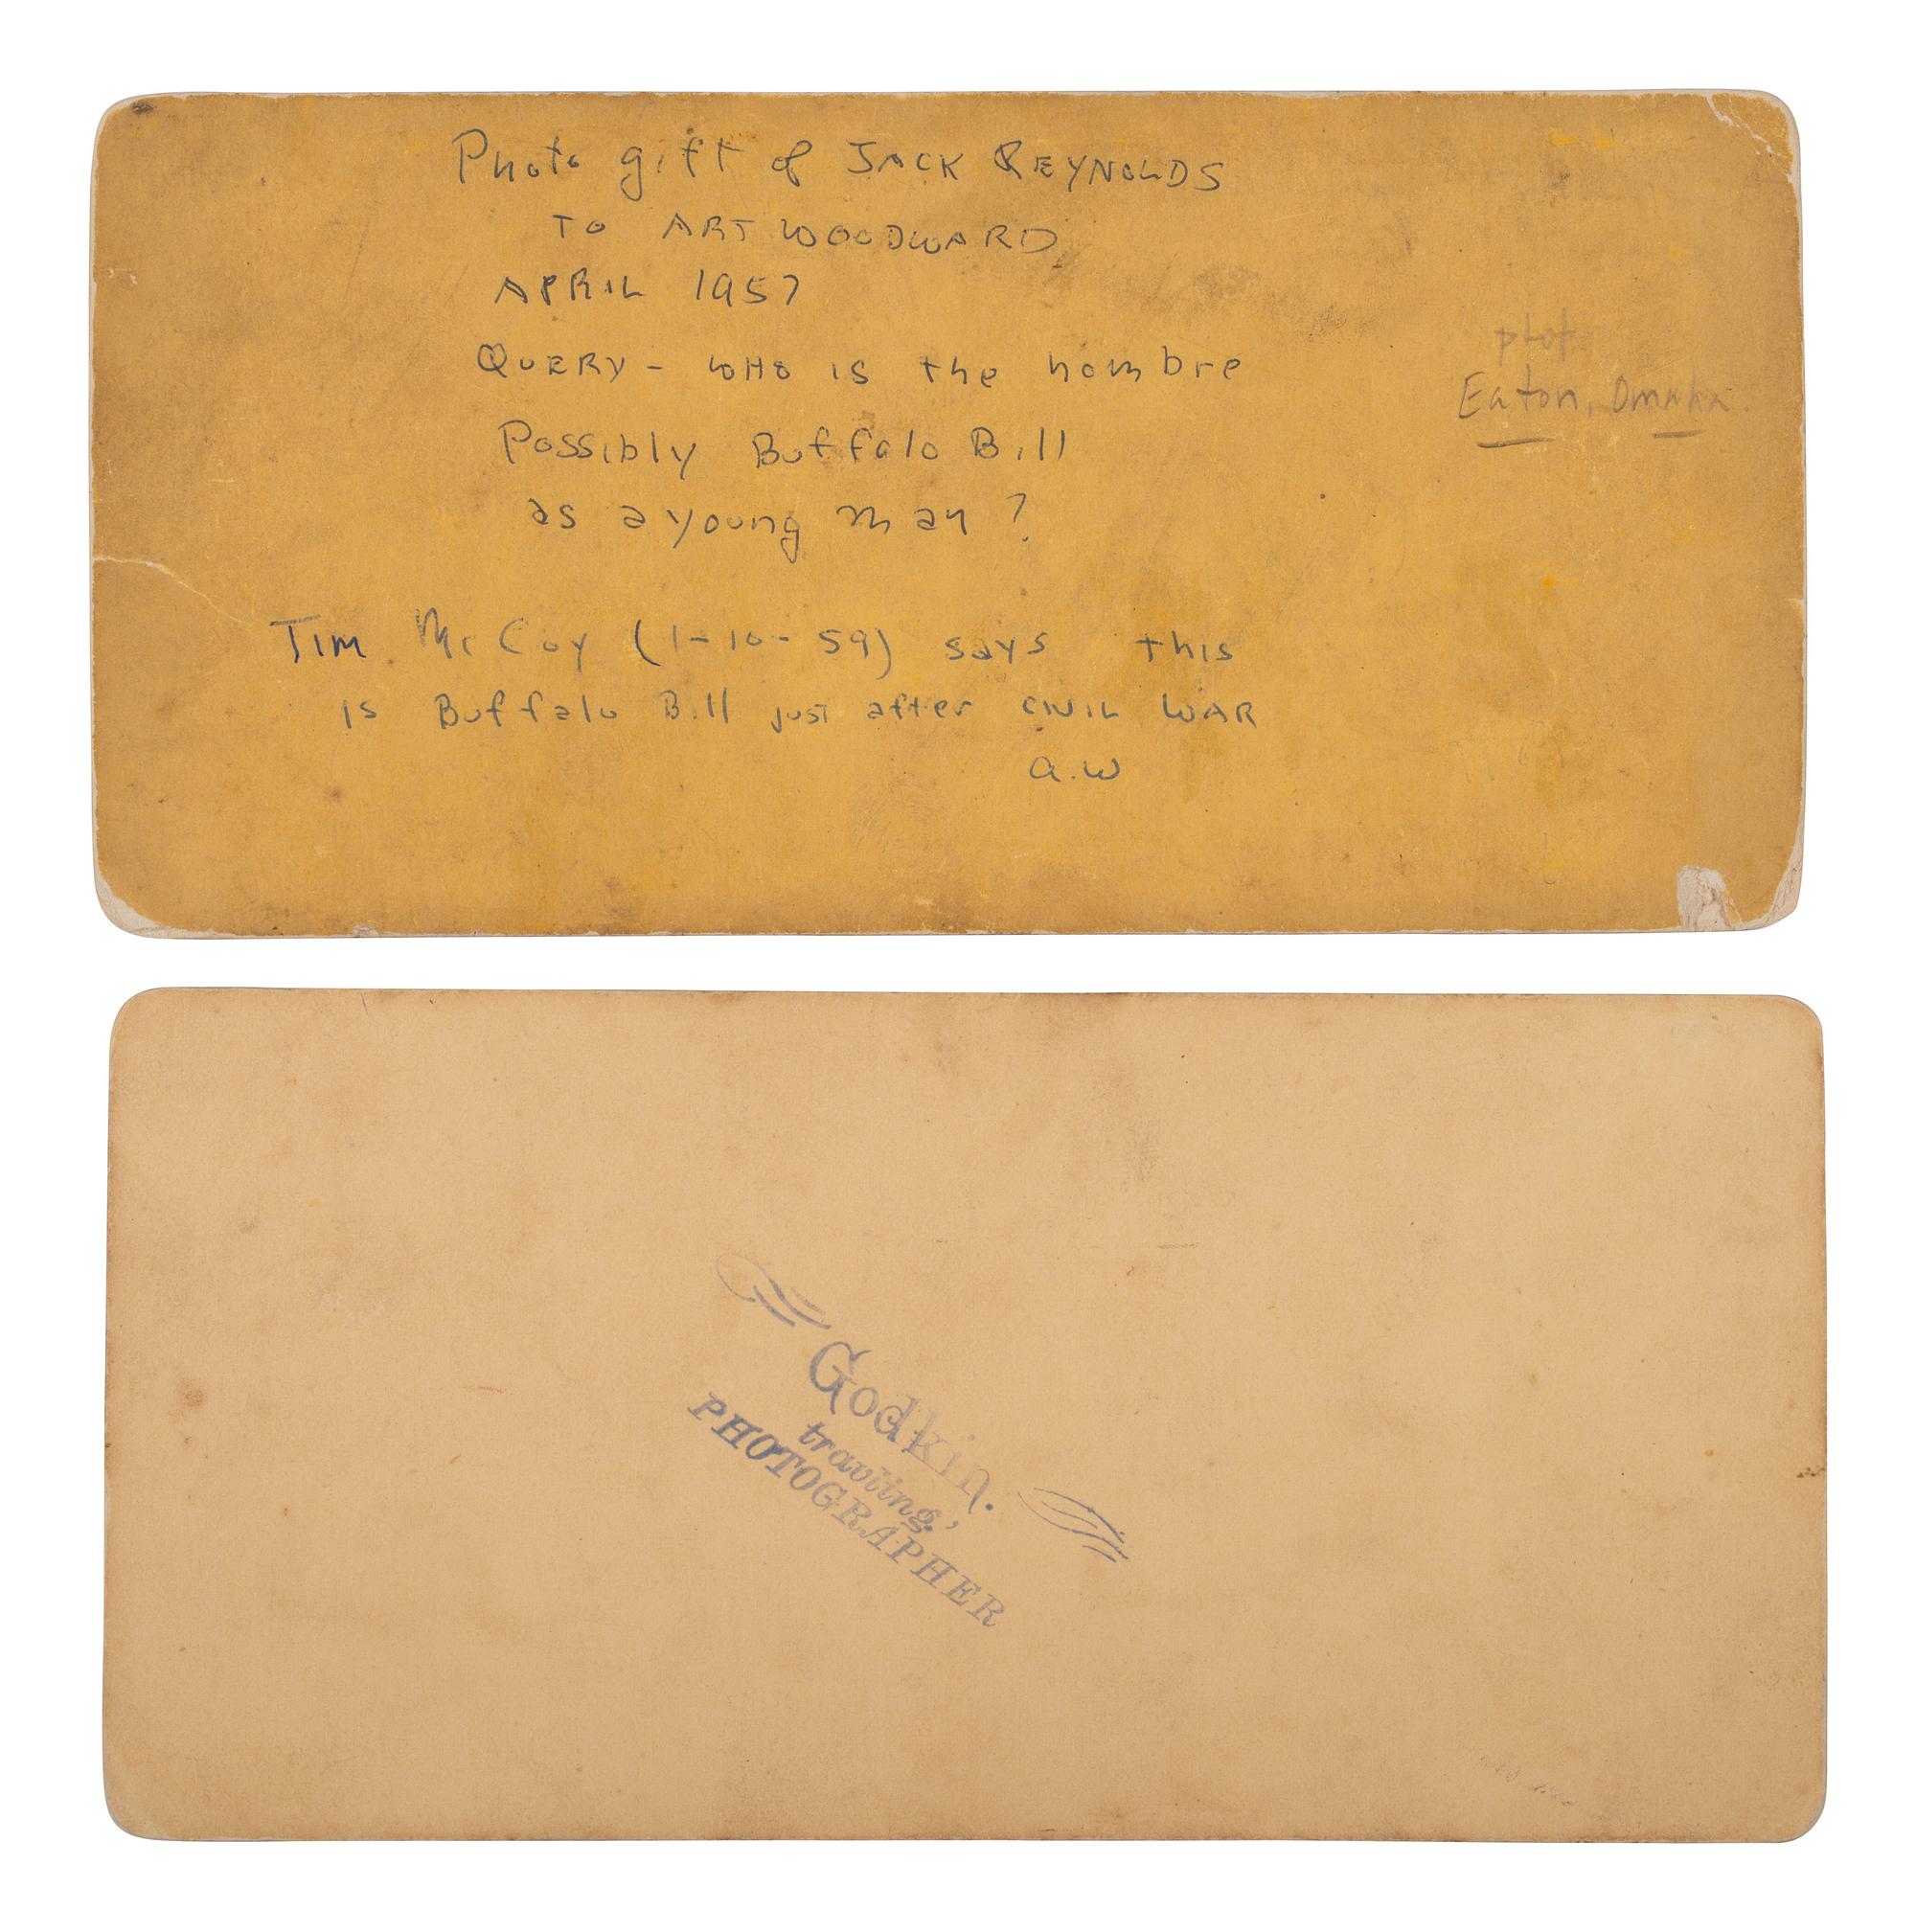 Photo gift of JACK REYNOLDS
TO ART WOODWARD
APRIL 1957
QUERY - WHO IS the hombre
Possibly Buffalo Bill
as a young man?
TIM McCoy (1-10-59) says this
is Buffalo Bill just after CIVIL WAR
a.w
Eaton, Omaha
Godkin.
travling,
PHOTOGRAPHER